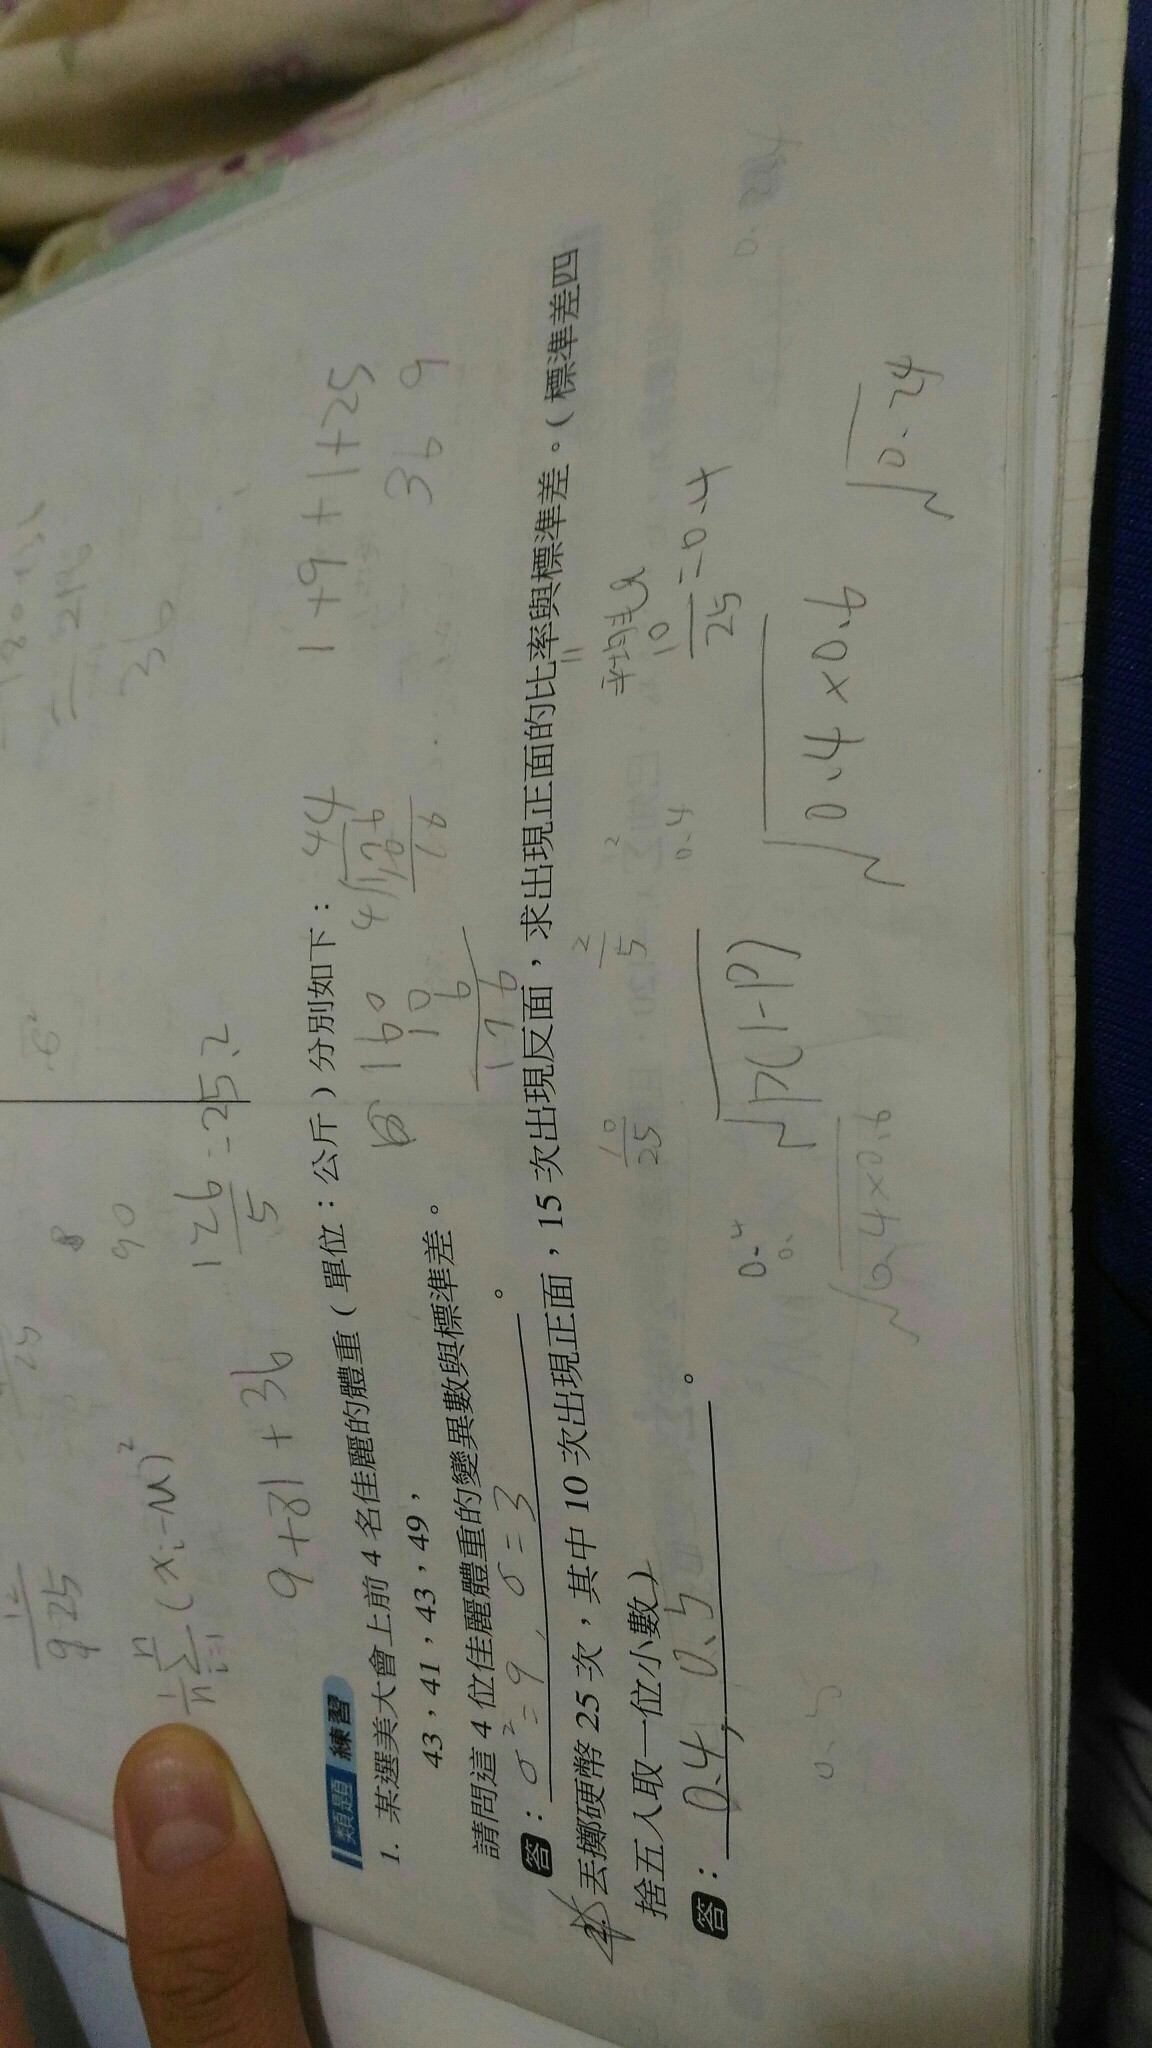 1/n Σ i=1 n (xi-μ)²
9+81+36
126/5=25.2
90
36
類題 練習
1. 某選美大會上前 4 名佳麗的體重(單位:公斤)分別如下:
43,41,43,49,
請問這 4 位佳麗體重的變異數與標準差。
答:σ²=9,σ=3。
160
10
6
176
44
1+9+1+25
36 9
2. 丟擲硬幣 25 次,其中 10 次出現正面,15 次出現反面,求出現正面的比率與標準差。(標準差四
捨五入取一位小數)
答:0.4,0.5。
10/25
2/5
0.4
10/25=0.4
0.4
√p(1-p)
√0.4×0.6
√0.4×0.6
√0.24
0.5